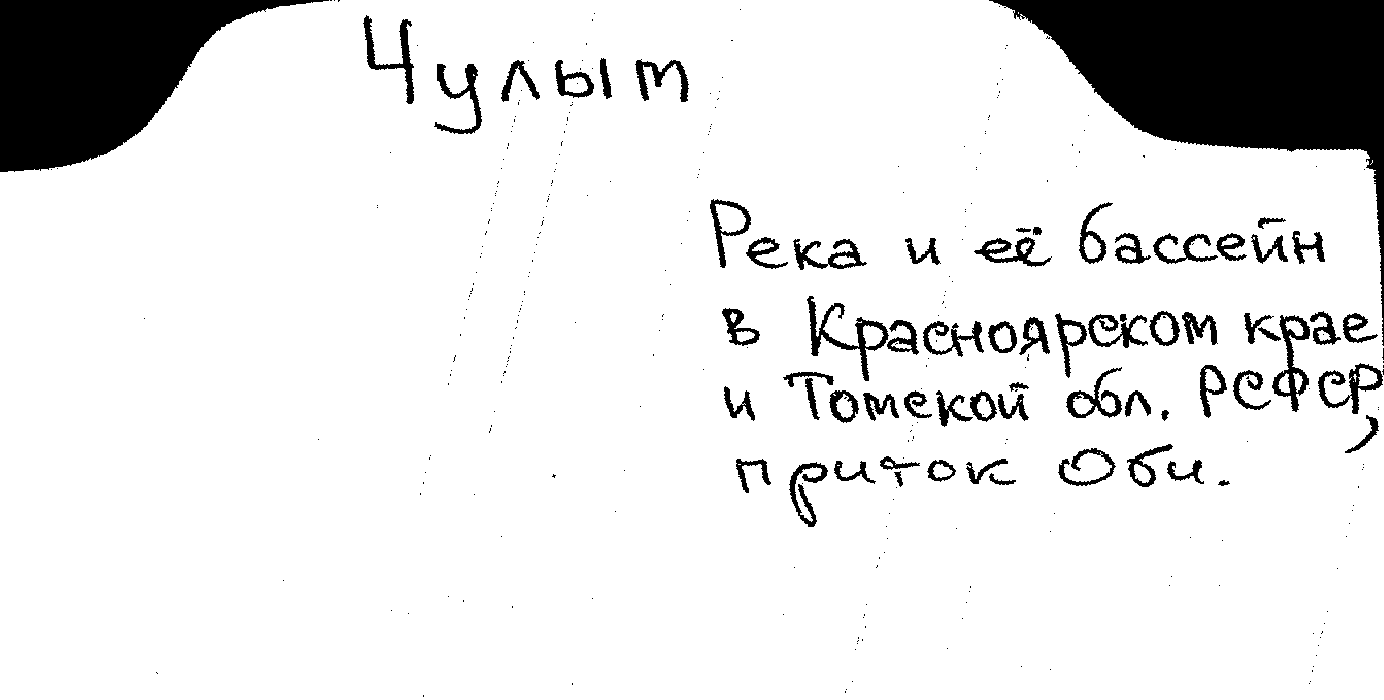 Чулым
Река и её бассейн
в Красноярском крае
и Томской обл. РСФСР,
приток Оби.